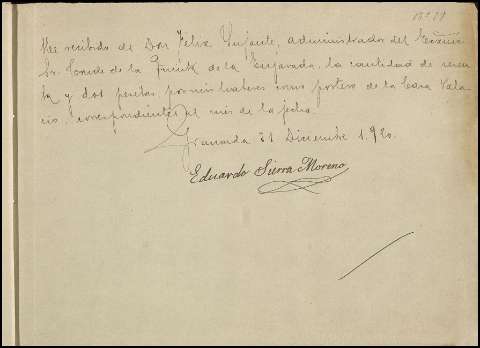 He recibido de Don Felix Infante, administrador del Excmo
Sr. Conde de la Puente de la Enjarada, la cantidad de sesen
ta y dos pesetas por mis haberes como portero de la Casa Pala
cio, correspondientes al mes de la fecha.
Granada 31 Diciembre 1.920.
Eduardo Sierra Moreno